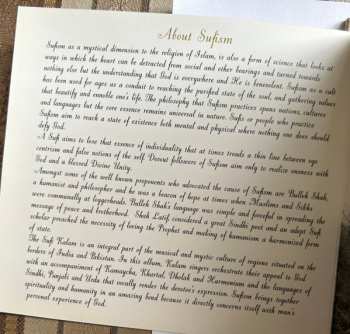 About Sufism
Sufism as a mystical dimension to the religion of Islam, is also a form of science that looks at
ways in which the heart can be detracted from social and other bearings and turned towards
nothing else but the understanding that God is everywhere and He is benevolent. Sufism as a cult
has been used for ages as a conduit to reaching the purified state of the soul, and gathering values
that beautify and ennoble one's life. The philosophy that Sufism practices spans nations, cultures
and languages but the core essence remains universal in nature. Sufis or people who practice
Sufism aim to reach a state of existence both mental and physical where nothing one does should
defy God.
A Sufi aims to lose that essence of individuality that at times trends a thin line between ego
centrism and false notions of the self. Devout followers of Sufism aim only to realize oneness with
God and a blessed Divine Unity.
Amongst some of the well known proponents who advocated the cause of Sufism are Bulleh Shah,
a humanist and philosopher and he was a beacon of hope at times when Muslims and Sikhs
were communally at loggerheads. Bulleh Shah's language was simple and forceful in spreading the
message of peace and brotherhood. Shah Latif considered a great Sindhi poet and an adept Sufi
scholar preached the necessity of loving the Prophet and making of humanism a harmonised form
of state.
The Sufi Kalam is an integral part of the musical and mystic culture of regions situated on the
borders of India and Pakistan. In this album, Kalam singers orchestrate their appeal to God
with an accompaniment of Kamaycha, Khartal, Dholak and Harmonium and the languages of
Sindhi, Punjabi and Urdu that vocally render the devotee's expression. Sufism brings together
spirituality and humanity in an amazing bond because it directly concerns itself with man's
personal experience of God.